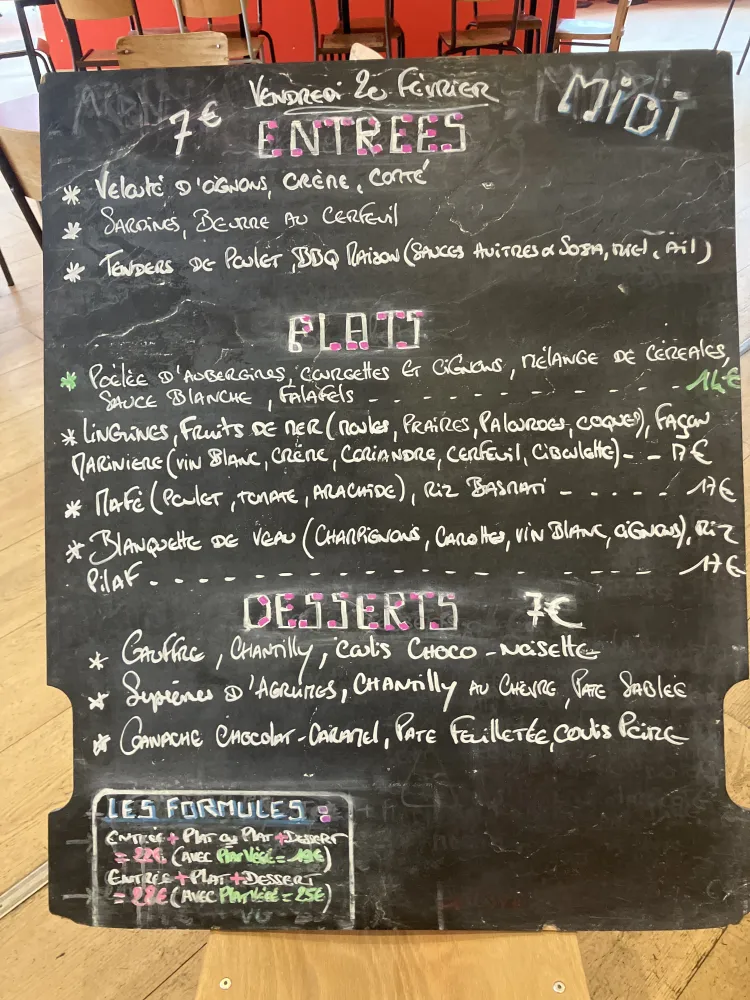 VENDREDI 20 FÉVRIER
MIDI
7€ ENTREES
* VELOUTÉ D'OIGNONS, CRÈME, COMTÉ
* SARDINES, BEURRE AU CERFEUIL
* TENDERS DE POULET, BBQ MAISON (SAUCES HUITRES & SOJA, MIEL, AIL)
PLATS
* POÊLÉE D'AUBERGINES, COURGETTES ET OIGNONS, MÉLANGE DE CÉREALES,
SAUCE BLANCHE, FALAFELS - - - - - - - - - - - - 14€
* LINGUINES, FRUITS DE MER (MOULES, PRAIRES, PALOURDES, COQUES), FAÇON
MARINIERE (VIN BLANC, CRÈME, CORIANDRE, CERFEUIL, CIBOULETTE) - - 17€
* MAFÉ (POULET, TOMATE, ARACHIDE), RIZ BASMATI - - - - - - 17€
* BLANQUETTE DE VEAU (CHAMPIGNONS, CAROTTES, VIN BLANC, OIGNONS), RIZ
PILAF - - - - - - - - - - - - - - - - 17€
DESSERTS 7€
* GAUFFRE, CHANTILLY, COULIS CHOCO-NOISETTE
* SUPRÊMES D'AGRUMES, CHANTILLY AU CHÈVRE, PATE SABLÉE
* GANACHE CHOCOLAT-CARAMEL, PATE FEUILLETÉE, COULIS POIRE
LES FORMULES :
ENTRÉE + PLAT OU PLAT + DESSERT
= 22€ (AVEC PLAT VÉGÉ = 19€)
ENTRÉE + PLAT + DESSERT
= 28€ (AVEC PLAT VÉGÉ = 25€)